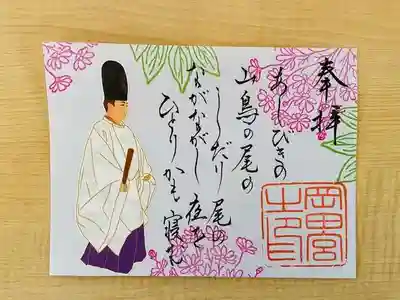 奉拝
あしびきの
山鳥の尾の
しだり尾の
ながながし夜を
ひとりかも寝む
岡田宮